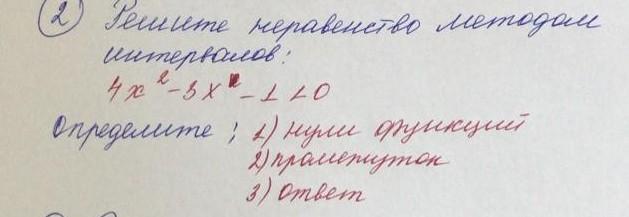 ② Решите неравенство методом
интервалов:
4x² - 3x - 1 < 0
Определите; 1) нули функций
2) промежуток
3) ответ